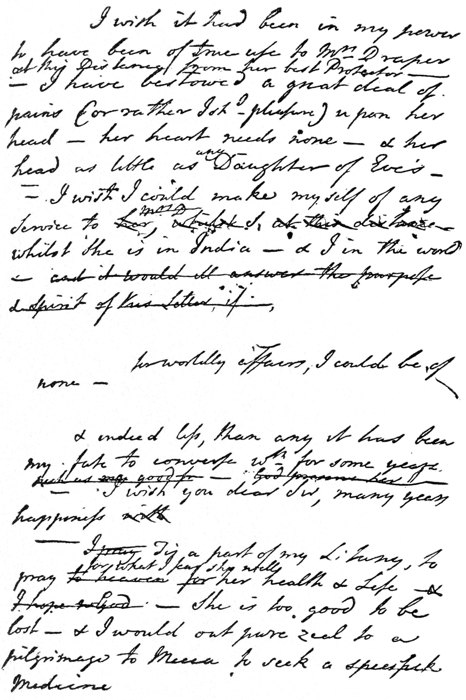 I wish it had been in my power
to have been of true use to Mrs Draper
at this Distance from her best Protector—
— I have bestowed a great deal of
pains (or rather I shd pleasure) upon her
head — her heart needs none — & her
head as little as any Daughter of Eve's —
— I wish I could make myself of any
Service to Mrs D. whilst
whilst she is in India — & I in the world
— and it would ill answer the purpose
& spirit of this Letter, if —,
for worldly affairs, I could be of
none —
& indeed less, than any it has been
my fate to converse wth for some years.
such as my good
— I wish you dear Sir, many years
happiness with
— I pray Tis a part of my Litany, to
for what I can
pray to heaven for her health & Life — &
I hope to God — She is too good to be
lost — & I would out pure zeal to a
pilgrimage to Mecca to seek a
Medicine